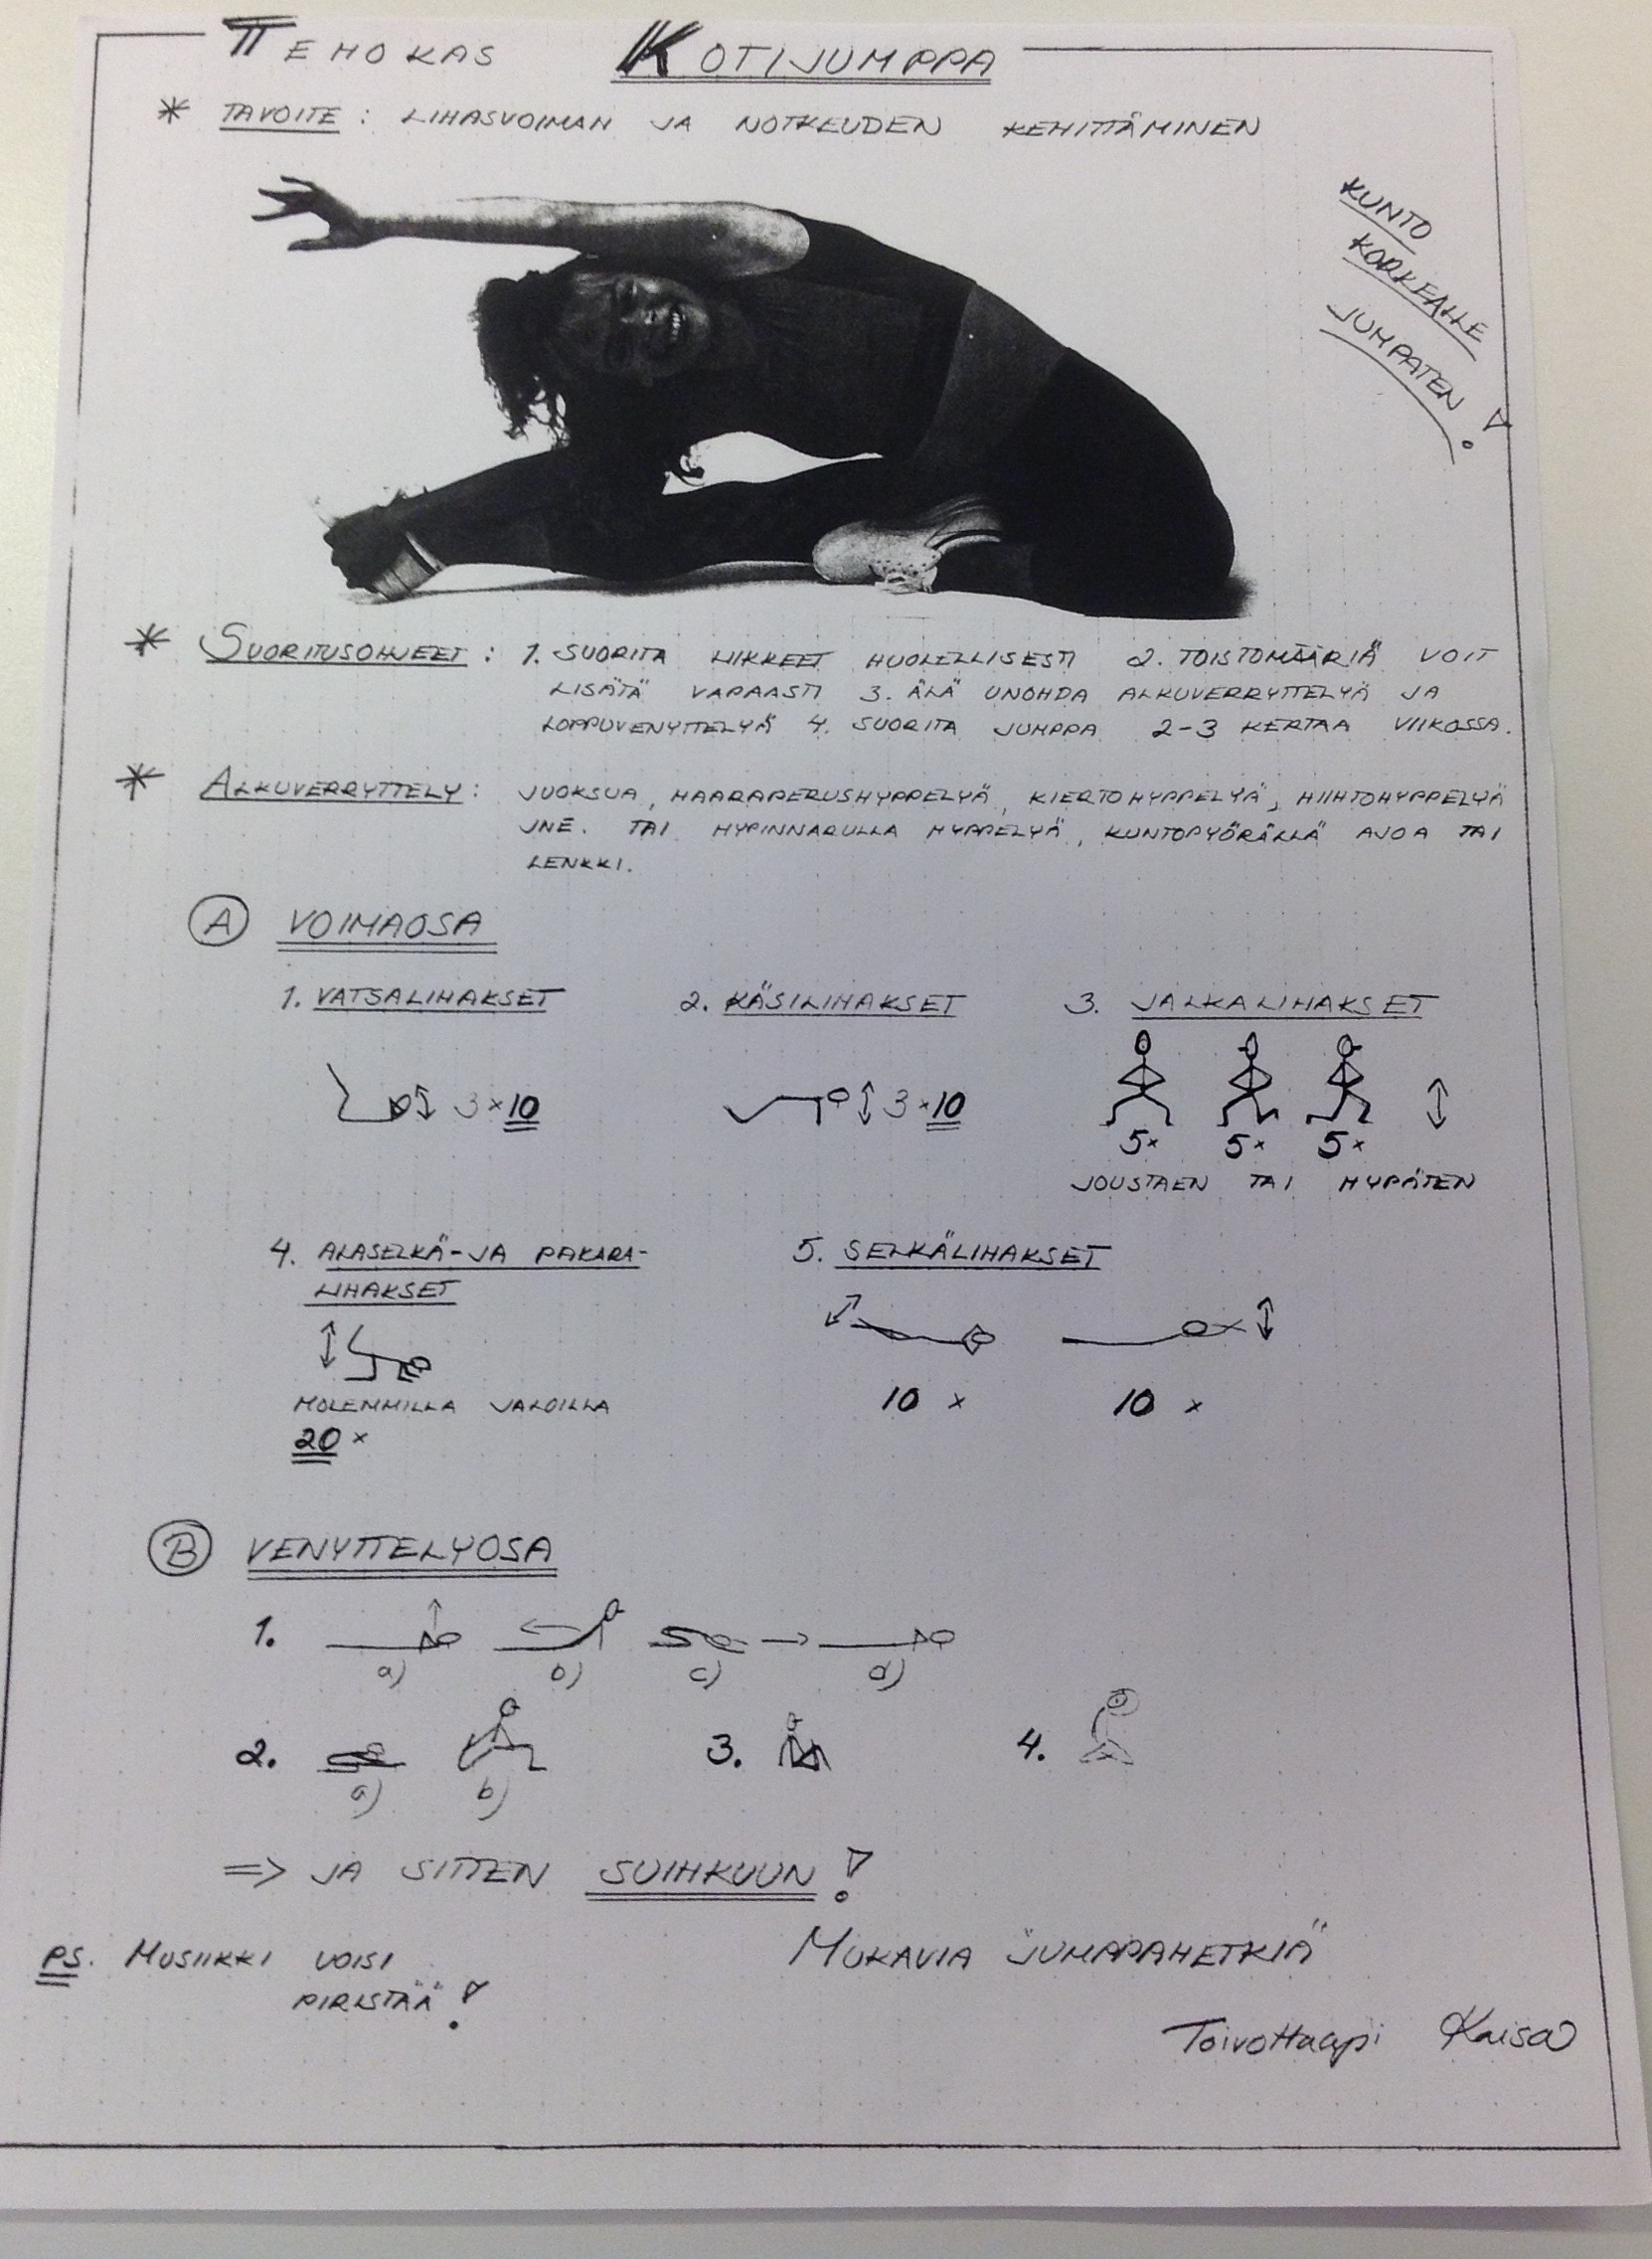 TEHOKAS KOTIJUMPPA
* TAVOITE: LIHASVOIMAN JA NOTKEUDEN KEHITTÄMINEN
KUNTO
KORKEALLE
JUMPATEN!
* SUORITUSOHJEET: 1. SUORITA LIIKKEET HUOLELLISESTI 2. TOISTOMÄÄRIÄ VOIT
LISÄTÄ VAPAASTI 3. ÄLÄ UNOHDA ALKUVERRYTTELYÄ JA
LOPPUVENYTTELYÄ 4. SUORITA JUMPPA 2-3 KERTAA VIIKOSSA.
* ALKUVERRYTTELY: JUOKSUA, HAARAPERUSHYPPELYÄ, KIERTOHYPPELYÄ, HIIHTOHYPPELYÄ
JNE. TAI HYPINNARULLA HYPPELYÄ, KUNTOPYÖRÄLLÄ AJOA TAI
LENKKI.
A VOIMAOSA
1. VATSALIHAKSET 2. KÄSILIHAKSET 3. JALKALIHAKSET
3×10 3×10
5× 5× 5×
JOUSTAEN TAI HYPÄTEN
4. ALASELKÄ- JA PAKARA-
LIHAKSET
5. SELKÄLIHAKSET
MOLEMMILLA JALOILLA
20 ×
10 × 10 ×
B VENYTTELYOSA
1.
a) b) c) d)
2. 3. 4.
a) b)
=> JA SITTEN SUIHKUUN!
PS. MUSIIKKI VOISI
PIRISTÄÄ!
MUKAVIA JUMPPAHETKIÄ
Toivottaapi Kaisa